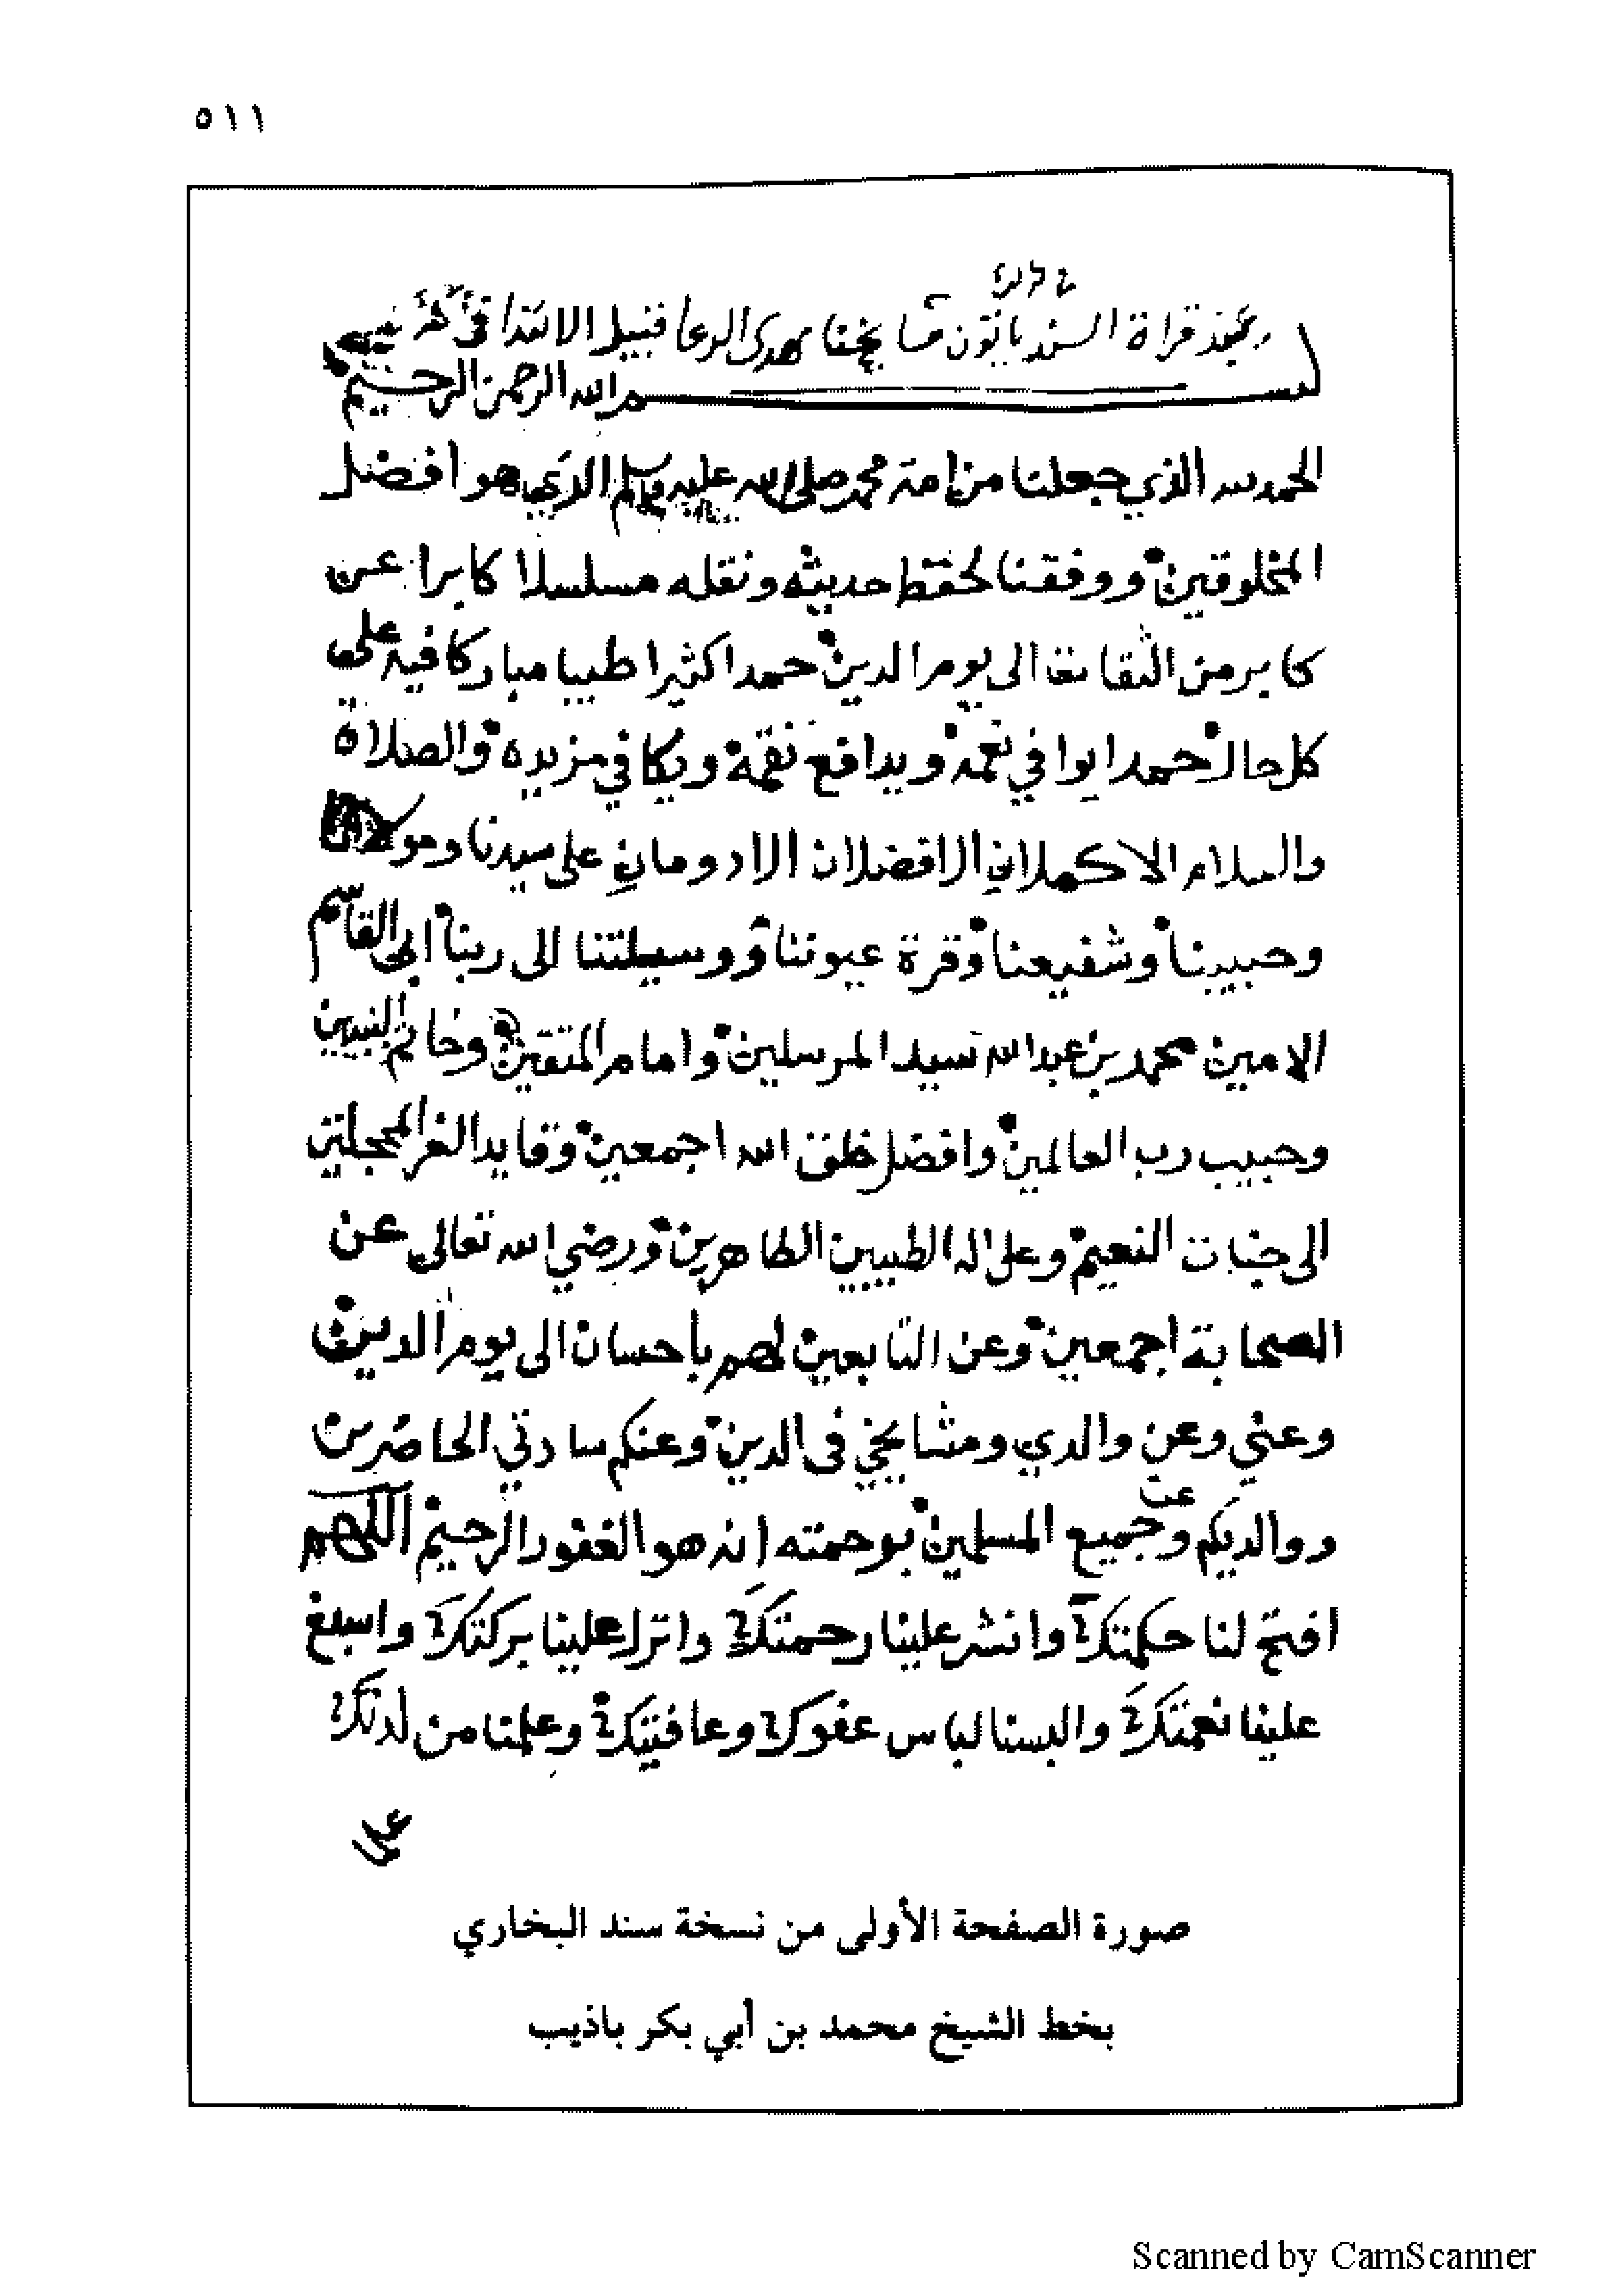 ٥١١
قراة السند ياتون مشايخنا بهدى الدعا قبيل الابتدا في
بسم الله الرحمن الرحيم
الحمد لله الذي جعلنا من امة محمد صلى الله عليه وسلم الذي هو افضل
المخلوقين ووفقنا لحفظ حديثه ونقله مسلسلا كابرا عن
كابر من الثقات الى يوم الدين حمدا كثيرا طيبا مباركا فيه على
كل حال حمدا يوافي نعمه ويدافع نقمه ويكافي مزيده والصلاة
والسلام الاكملان الافضلان الادومان على سيدنا ومولانا
وحبيبنا وشفيعنا وقرة عيوننا ووسيلتنا الى ربنا ابى القاسم
الامين محمد بن عبد الله سيد المرسلين وامام المتقين وخاتم النبيين
وحبيب رب العالمين وافضل خلق الله اجمعين وقايد الغر المحجلين
الى جنات النعيم وعلى اله الطيبين الطاهرين ورضي الله تعالى عن
الصحابة اجمعين وعن التابعين لهم باحسان الى يوم الدين
وعني وعن والدي ومشايخي في الدين وعنكم سادتي الحاضرين
ووالديكم وعن جميع المسلمين برحمته انه هو الغفور الرحيم اللهم
افتح لنا حكمتك وانشر علينا رحمتك وانزل علينا بركتك واسبغ
علينا نعمتك والبسنا لباس عفوك وعافيتك وعلمنا من لدنك
صورة الصفحة الأولى من نسخة سند البخاري
بخط الشيخ محمد بن أبي بكر باذيب
Scanned by CamScanner